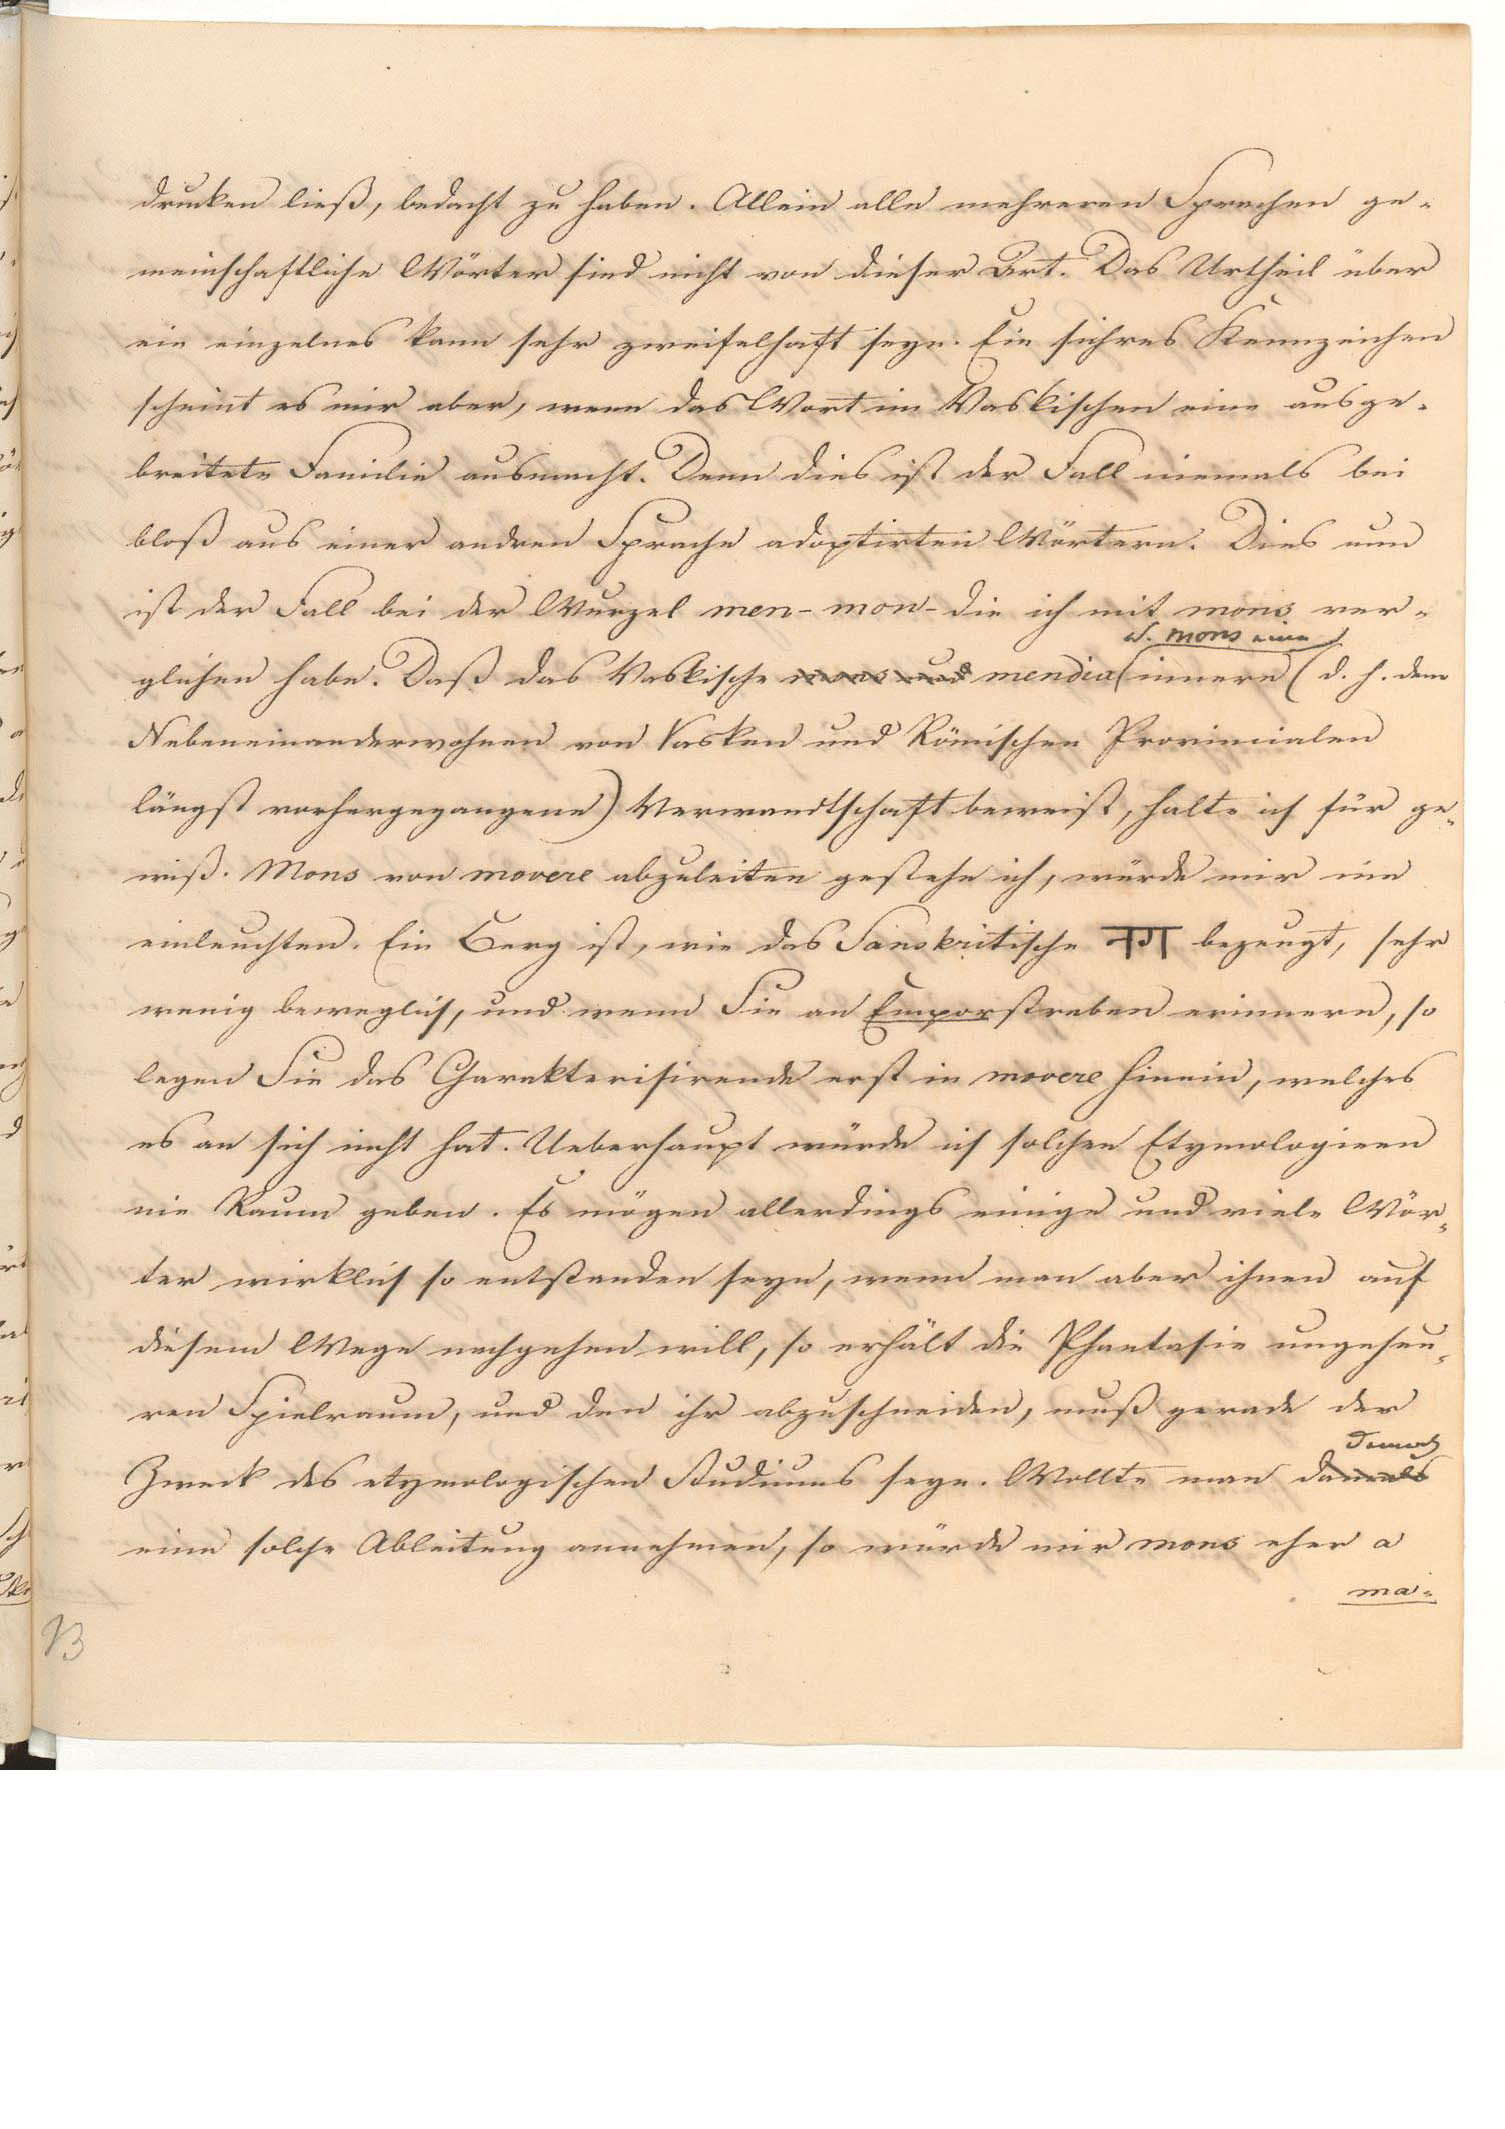 drucken ließ, bedacht zu haben. Allein alle mehreren Sprachen ge-
meinschaftliche Wörter sind nicht von dieser Art. Das Urtheil über
ein einzelnes kann sehr zweifelhaft seyn. Ein sichres Kennzeichen
scheint es mir aber, wenn das Wort im Vaskischen eine ausge-
breitete Familie ausmacht. Denn dies ist der Fall niemals bei
bloß aus einer andren Sprache adoptirten Wörtern. Dies nun
ist der Fall bei der Wurzel men- mon- die ich mit mons ver-
u. mons eine
glichen habe. Daß das Vaskische mons und mendia innere (d. h. dem
Nebeneinanderwohnen von Vasken und Römischen Provincialen
längst vorhergegangene) Verwandtschaft beweist, halte ich für ge-
wiß. Mons von movere abzuleiten gestehe ich, würde mir nie
einleuchten. Ein Berg ist, wie das Sanskritische नग bezeugt, sehr
wenig beweglich, und wenn Sie an Emporstreben erinnern, so
legen Sie das Charakterisirende erst in movere hinein, welches
es an sich nicht hat. Ueberhaupt würde ich solchen Etymologieen
nie Raum geben. Es mögen allerdings einige und viele Wör-
ter wirklich so entstanden seyn, wenn man aber ihnen auf
diesem Wege nachgehen will, so erhält die Phantasie ungeheu-
ren Spielraum, und den ihr abzuschneiden, muß gerade der
dennoch
Zweck des etymologischen Studiums seyn. Wollte man damals
eine solche Ableitung annehmen, so würde mir mons eher a
ma-